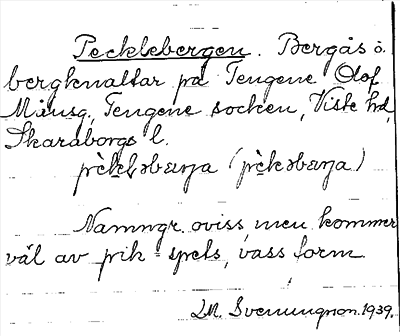 Pecklebergen. Bergås ö.
bergknaltar på Tengene Olof
Månsg, Tengene socken, Viste hd,
Skaraborgs l.
pèkləbærɳa (pèkəbærɳa)
Namngr. oviss, men kommer
väl av pik = spets, vass form
M. Svenungson. 1939.